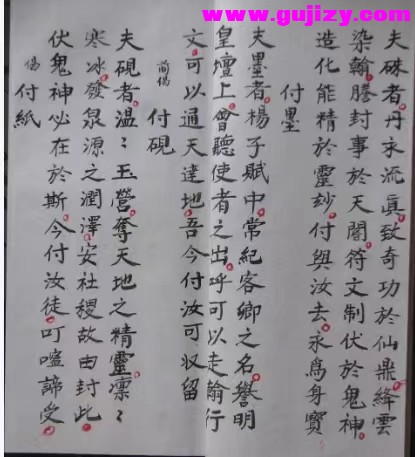 www.gujizy.com
夫硃者丹永流真致奇功於仙鼎絳雲
染翰謄封事於天閽符文制伏於鬼神
造化能精於靈玅付與汝去永爲身寶
付墨
夫墨者楊子賦中常紀客卿之名譽明
皇壇上會聽使者之出呼可以走龥行
文可以通天達地吾今付汝可収留
前偈 付硯
夫硯者溫〻玉營奪天地之精靈凛〻
寒冰發泉源之潤澤安社稷故由封此
伏鬼神必在於斯今付汝徒叮嚀諦受
偈 付紙